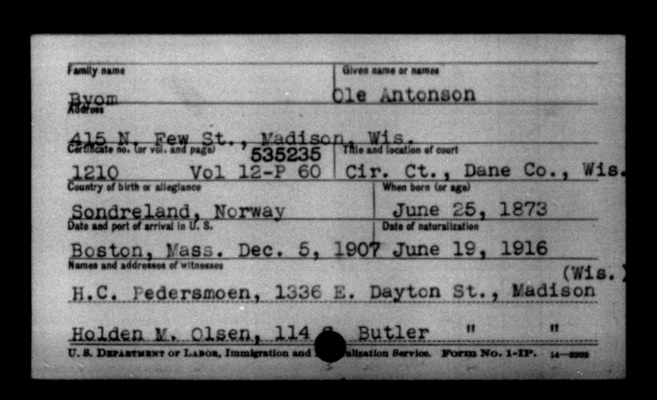 Family name Given name or names
Byom Ole Antonson
Address
415 N. Few St., Madison, Wis.
Certificate no. (or vol. and page) 535235 Title and location of court
1210 Vol 12-P 60 Cir. Ct., Dane Co., Wis.
Country of birth or allegiance When born (or age)
Sondreland, Norway June 25, 1873
Date and port of arrival in U. S. Date of naturalization
Boston, Mass. Dec. 5, 1907 June 19, 1916
Names and addresses of witnesses
(Wis.)
H.C. Pedersmoen, 1336 E. Dayton St., Madison
Holden M. Olsen, 114 Butler " "
U. S. Department of Labor, Immigration and Naturalization Service. Form No. 1-IP. 14—2202